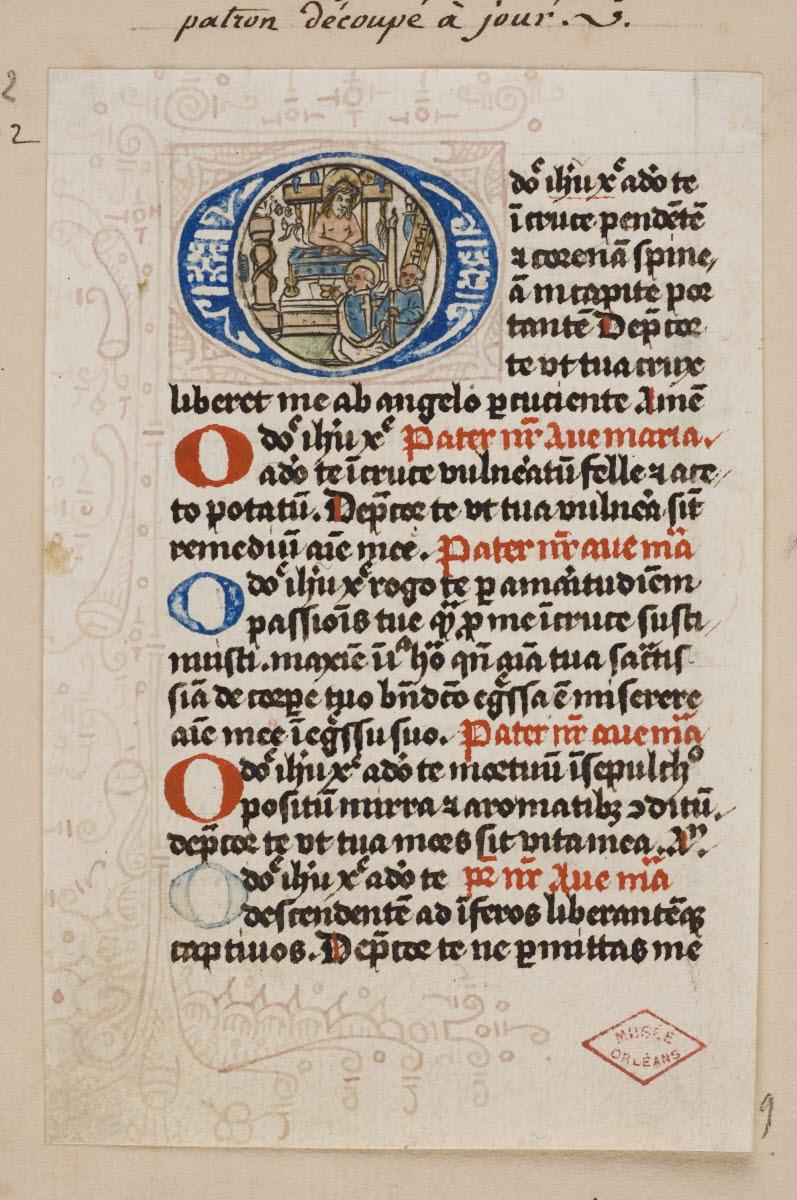 patron découpé à jour.
2
2
O dōe ihu xe ado te
ī cruce pendētē
⁊ coronā spine,
ā in capite por
tantē Dep̄cor
te vt tua crux
liberet me ab angelo ꝑcuciente Amē
O dōe ihu xe Pater nr̄ Aue maria.
ado te ī cruce vulneatū felle ⁊ ace
to potatū. Dep̄cor te vt tua vulnea sīt
remediū aīe mee. Pater nr̄ aue mīa
O dōe ihu xe rogo te ꝑ amaitudiēm
passiois tue qm̄ ꝓ me ī cruce susti
nuisti. maxīe ī ho qn̄ aīa tua sāctis
siā de corꝑe tuo bn̄dcō egssa ē miserere
aīe mee ī egssu suo. Pater nr̄ aue mīa
O dōe ihu xe ado te mortuū ī sepulchº
positū mirra ⁊ aromatibꝫ ↄditū.
dep̄cor te vt tua mors sit vita mea. Am̄.
O dōe ihu xe ado te pr̄ nr̄ Aue mīa
descendentē ad īferos liberantēqꝫ
captiuos. Dep̄cor te ne ꝑmittas me
MUSÉE
ORLÉANS
9